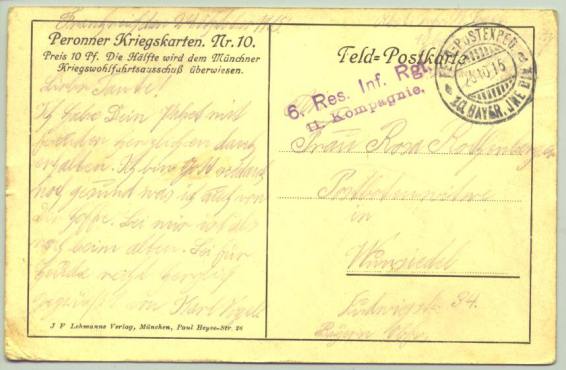 Peronner Kriegskarten. Nr. 10.
Preis 10 Pf. Die Hälfte wird dem Münchner
Kriegswohlfahrtsausschuß überwiesen.
Liebe Tante!
Ich habe Dein Paket mit
Freuden herzlichen dank
erhalten. Ich bin Gott sei dank
noch gesund was ich auch von
Dir hoffe. Bei mir ist als
noch beim alten. Sei für
heute recht herzlich
gegrüßt von Karl
J F Lehmanns Verlag, München, Paul Heyse-Str. 26
Feld-Postkarte
FELD-POSTEXPED.
28.10.15
BAYER. INF. DIV.
6. Res. Inf. Rgt.
11. Kompagnie.
Frau Rosa
Postbotenwitwe
in
Wunsiedel
Ludwigstr. 34.
Bayern